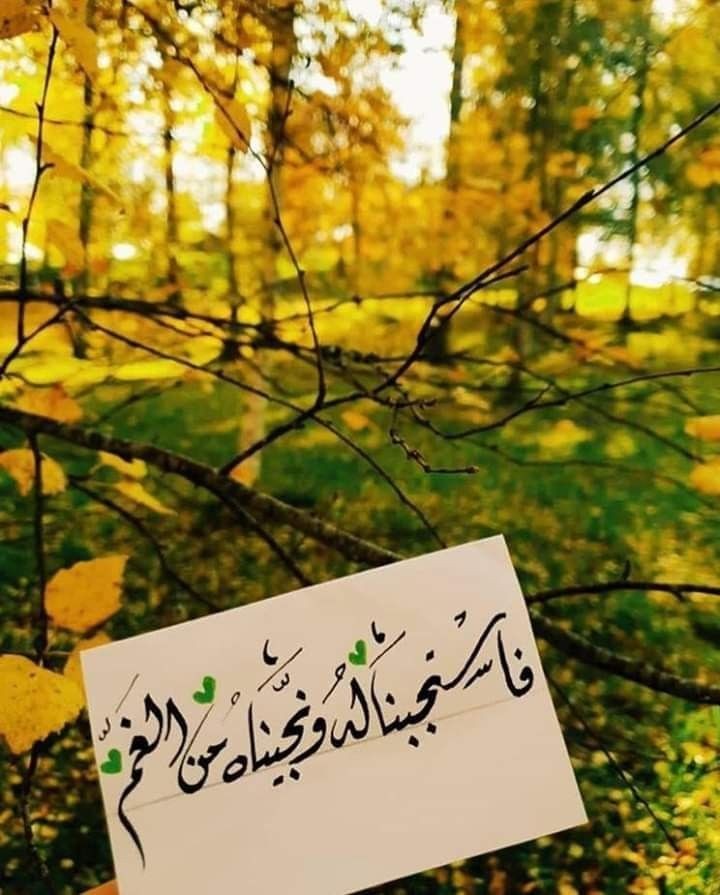 فاستجبنا له ونجيناه من الغم